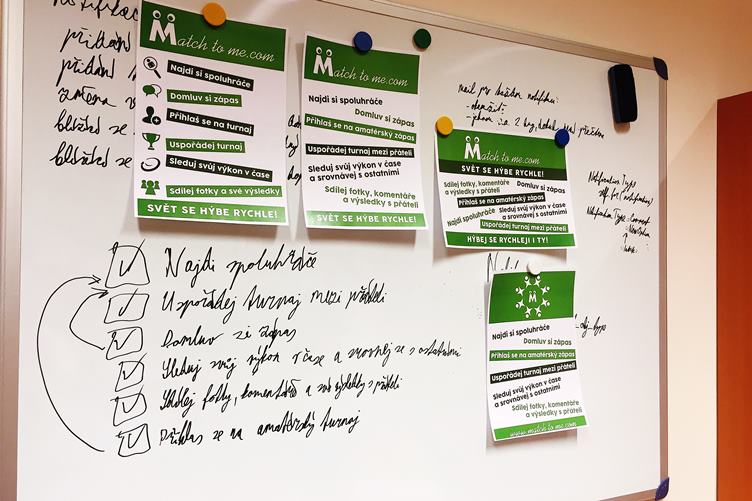 přidání
přidání
změna
blíží se
blíží se
Match to me.com
Najdi si spoluhráče
Domluv si zápas
Přihlaš se na turnaj
Uspořádej turnaj
Sleduj svůj výkon v čase
Sdílej fotky a své výsledky
SVĚT SE HÝBE RYCHLE!
Match to me.com
Najdi si spoluhráče
Domluv si zápas
Přihlaš se na amatérský zápas
Uspořádej turnaj mezi přáteli
Sleduj svůj výkon v čase
a srovnávej s ostatními
Sdílej fotky, komentáře
a výsledky s přáteli
SVĚT SE HÝBE RYCHLE!
mail pro každou notifikaci
Match to me.com
SVĚT SE HÝBE RYCHLE!
Sdílej fotky, komentáře
a výsledky s přáteli
Domluv si zápas
Přihlaš se na amatérský zápas
Najdi si spoluhráče
Sleduj svůj výkon v čase
a srovnávej s ostatními
Uspořádej turnaj mezi přáteli
HÝBEJ SE RYCHLEJI I TY!
Notification Type
Najdi si spoluhráče
Domluv si zápas
Přihlaš se na amatérský zápas
Uspořádej turnaj mezi přáteli
Sleduj svůj výkon v čase
a srovnávej s ostatními
Sdílej fotky, komentáře
a výsledky s přáteli
www.match to me.com
Najdi spoluhráče
Uspořádej turnaj mezi přáteli
Domluv si zápas
Sleduj svůj výkon v čase a srovnej se s ostatními
Sdílej fotky, komentáře a své výsledky s přáteli
Přihlas se na amatérský turnaj